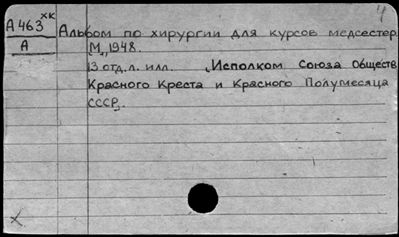 4
А463 ХК
А
Альбом по хирургии для курсов медсестер.
М., 1948.
13 отд. л. илл. Исполком Союза Обществ
Красного Креста и Красного Полумесяца
СССР.